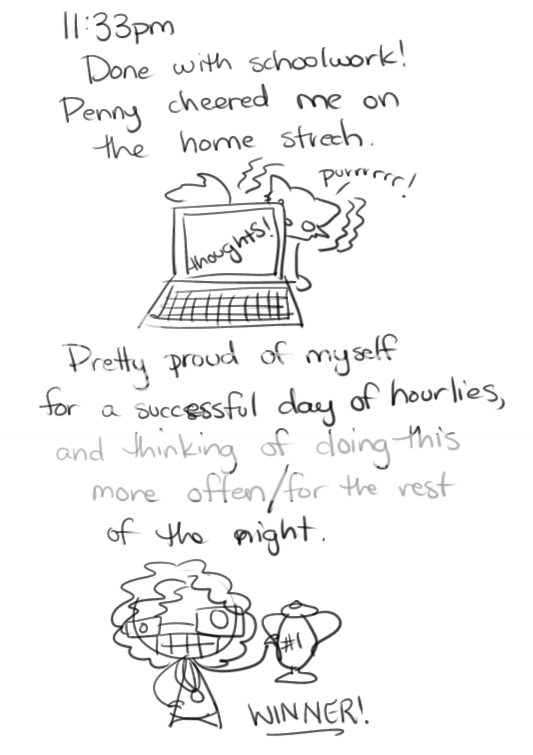 11:33pm
Done with schoolwork!
Penny cheered me on
the home strech.
purrrrrr!
thoughts!
Pretty proud of myself
for a successful day of hourlies,
and thinking of doing this
more often/for the rest
of the night.
#1
WINNER!